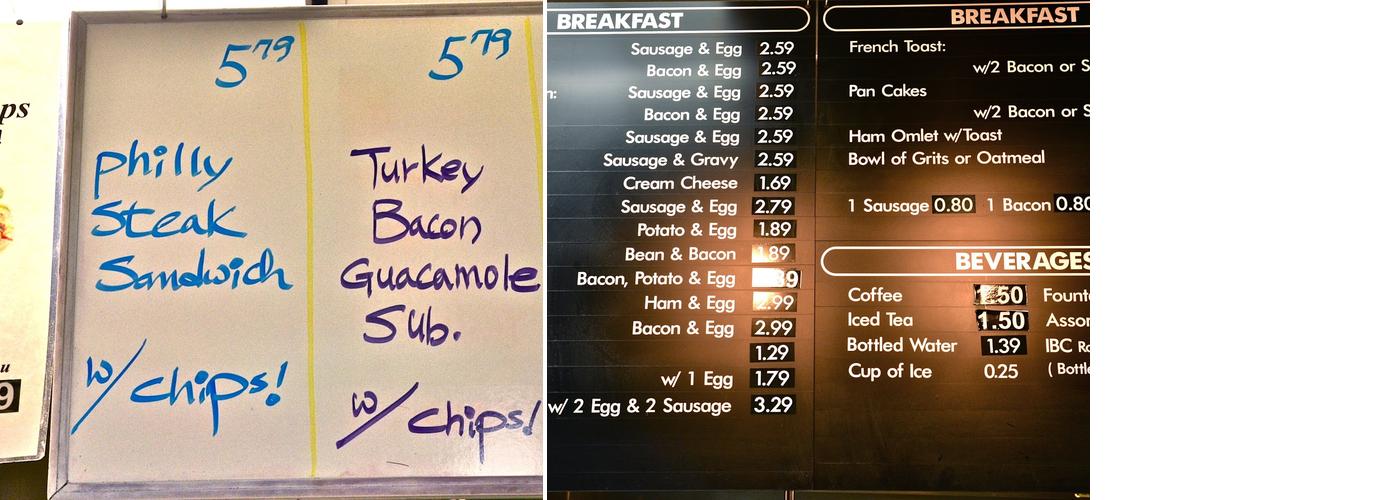 ps
u
9
5.79
philly
Steak
Sandwich
w/ chips!
5.79
Turkey
Bacon
Guacamole
Sub.
w/ chips!
BREAKFAST
Sausage & Egg 2.59
Bacon & Egg 2.59
n: Sausage & Egg 2.59
Bacon & Egg 2.59
Sausage & Egg 2.59
Sausage & Gravy 2.59
Cream Cheese 1.69
Sausage & Egg 2.79
Potato & Egg 1.89
Bean & Bacon 1.89
Bacon, Potato & Egg
Ham & Egg 2.99
Bacon & Egg 2.99
1.29
w/ 1 Egg 1.79
w/ 2 Egg & 2 Sausage 3.29
BREAKFAST
French Toast:
w/2 Bacon or S
Pan Cakes
w/2 Bacon or S
Ham Omlet w/Toast
Bowl of Grits or Oatmeal
1 Sausage 0.80 1 Bacon 0.80
BEVERAGES
Coffee 1.50 Founta
Iced Tea 1.50 Assor
Bottled Water 1.39 IBC Ro
Cup of Ice 0.25 ( Bottle